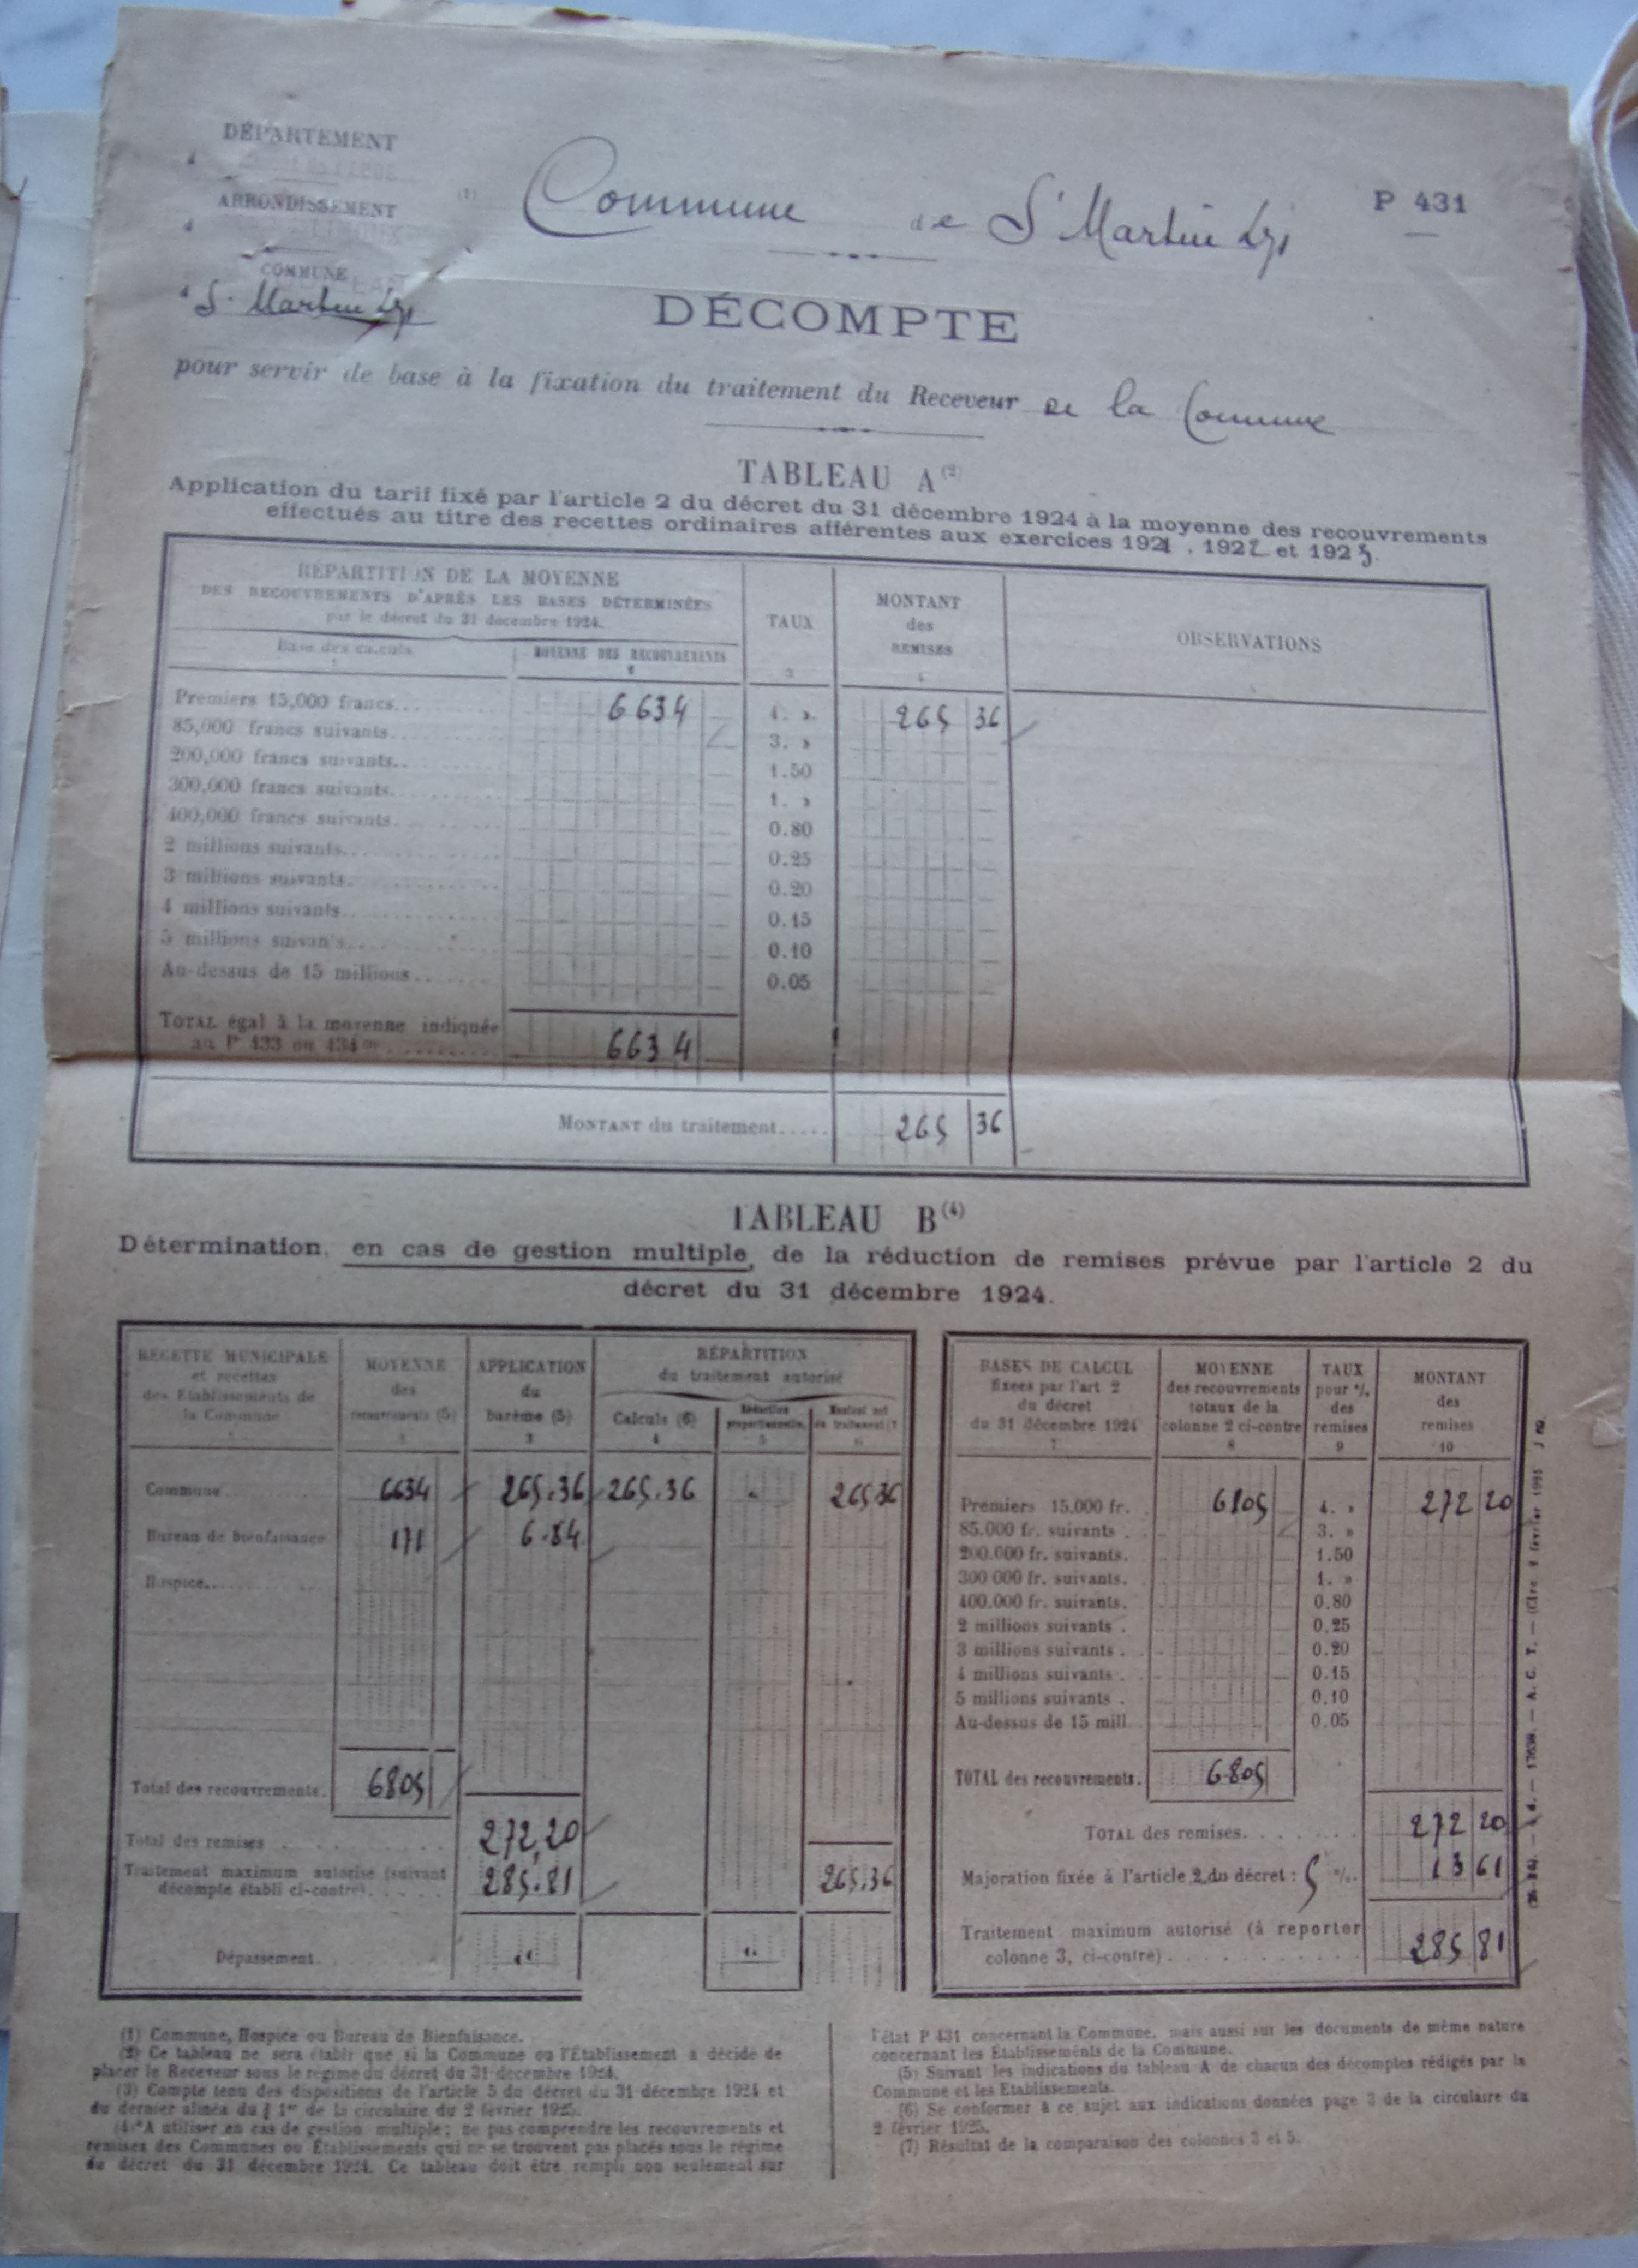 DÉPARTEMENT
ARRONDISSEMENT
COMMUNE
d S<sup>t</sup> Martin Lys
(1) Commune de S<sup>t</sup> Martin Lys
P 431
DÉCOMPTE
pour servir de base à la fixation du traitement du Receveur de la Commune
TABLEAU A (2)
Application du tarif fixé par l'article 2 du décret du 31 décembre 1924 à la moyenne des recouvrements
effectués au titre des recettes ordinaires afférentes aux exercices 1921, 1922 et 1923.
RÉPARTITION DE LA MOYENNE
DES RECOUVREMENTS D'APRÈS LES BASES DÉTERMINÉES
par le décret du 31 décembre 1924.
Base des calculs
1
MOYENNE DES RECOUVREMENTS
2
TAUX
3
MONTANT
des
REMISES
4
OBSERVATIONS
Premiers 15,000 francs 6634 4. » 265 36
85,000 francs suivants 3. »
200,000 francs suivants 1.50
300,000 francs suivants 1. »
400,000 francs suivants 0.80
2 millions suivants 0.25
3 millions suivants 0.20
4 millions suivants 0.15
5 millions suivants 0.10
Au-dessus de 15 millions 0.05
TOTAL égal à la moyenne indiquée
au P 433 ou 434 (3) 6634
MONTANT du traitement 265 36
TABLEAU B (4)
Détermination, en cas de gestion multiple, de la réduction de remises prévue par l'article 2 du
décret du 31 décembre 1924.
RECETTE MUNICIPALE
et recettes
des Etablissements de
la Commune
1
MOYENNE
des
recouvrements (5)
2
APPLICATION
du
barème (5)
3
RÉPARTITION
du traitement autorisé
Calculs (6)
4
Réduction
proportionnelle
5
Montant net
du traitement (7)
6
Commune 6634 265.36 265.36 " 265 36
Bureau de bienfaisance 171 6.84
Hospice
Total des recouvrements. 6805
Total des remises 272,20
Traitement maximum autorisé (suivant
décompte établi ci-contre) 285.81 265.36
Dépassement " "
BASES DE CALCUL
fixées par l'art 2
du décret
du 31 décembre 1924
7
MOYENNE
des recouvrements
totaux de la
colonne 2 ci-contre
8
TAUX
pour %
des
remises
9
MONTANT
des
remises
10
Premiers 15.000 fr. 6805 4. » 272 20
85.000 fr. suivants 3. »
200.000 fr. suivants. 1.50
300 000 fr. suivants. 1. »
400.000 fr. suivants. 0.80
2 millions suivants 0.25
3 millions suivants 0.20
4 millions suivants 0.15
5 millions suivants 0.10
Au-dessus de 15 mill. 0.05
TOTAL des recouvrements. 6805
TOTAL des remises. 272 20
Majoration fixée à l'article 2 du décret : 5 %. 13 61
Traitement maximum autorisé (à reporter
colonne 3, ci-contre) 285 81
(1) Commune, Hospice ou Bureau de Bienfaisance.
(2) Ce tableau ne sera établi que si la Commune ou l'Établissement a décidé de
placer le Receveur sous le régime du décret du 31 décembre 1924.
(3) Compte tenu des dispositions de l'article 5 du décret du 31 décembre 1924 et
du dernier alinéa du § 1er de la circulaire du 2 février 1925.
(4) A utiliser en cas de gestion multiple; ne pas comprendre les recouvrements et
remises des Communes ou Établissements qui ne se trouvent pas placés sous le régime
du décret du 31 décembre 1924. Ce tableau doit être rempli non seulement sur
l'état P 431 concernant la Commune, mais aussi sur les documents de même nature
concernant les Établissements de la Commune.
(5) Suivant les indications du tableau A de chacun des décomptes rédigés par la
Commune et les Etablissements.
(6) Se conformer à ce sujet aux indications données page 3 de la circulaire du
2 février 1925.
(7) Résultat de la comparaison des colonnes 3 et 5.